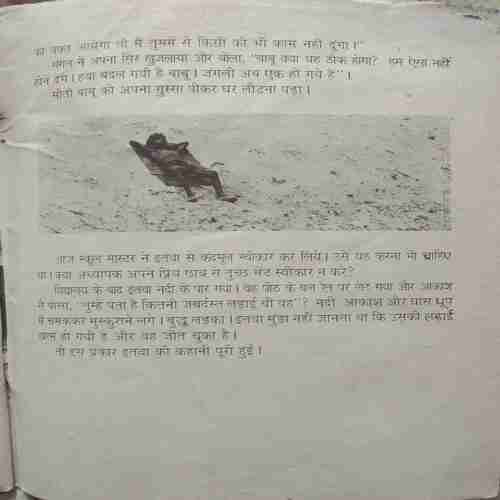 का वक्त आयेगा तो मैं तुममें से किसी को भी काम नहीं दूंगा।"
मंगल ने अपना सिर खुजलाया और बोला, "बाबू क्या यह ठीक होगा? हम ऐसा नहीं
होने देंगे। हवा बदल गयी है बाबू। जंगली अब एक हो गये हैं"।
मोती बाबू को अपना गुस्सा पीकर घर लौटना पड़ा।
आज स्कूल मास्टर ने इतवा से कंदमूल स्वीकार कर लिये। उसे यह करना भी चाहिए
था। क्या अध्यापक अपने प्रिय छात्र से तुच्छ भेंट स्वीकार न करे?
विद्यालय के बाद इतवा नदी के पार गया। वह पीठ के बल रेत पर लेट गया और आकाश
से बोला, "तुम्हें पता है कितनी जबर्दस्त लड़ाई थी वह"? नदी आकाश और घास धूप
में चमककर मुस्कुराने लगे। बुद्धू लड़का। इतवा मुंडा नहीं जानता था कि उसकी लड़ाई
खत्म हो गयी है और वह जीत चुका है।
तो इस प्रकार इतवा की कहानी पूरी हुई।